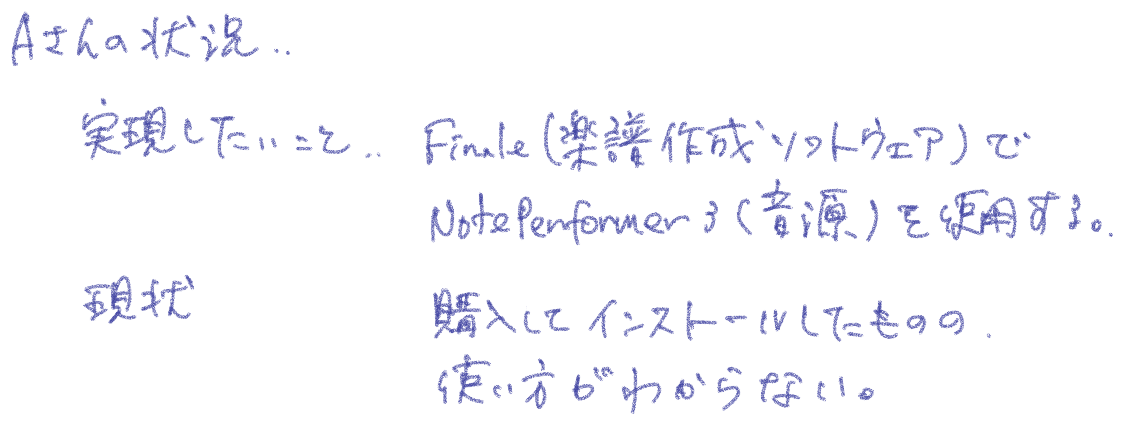 Aさんの状況..
実現したいこと.. Finale(楽譜作成ソフトウェア)で
NotePerformer 3(音源)を使用する。
現状 購入してインストールしたものの、
使い方がわからない。